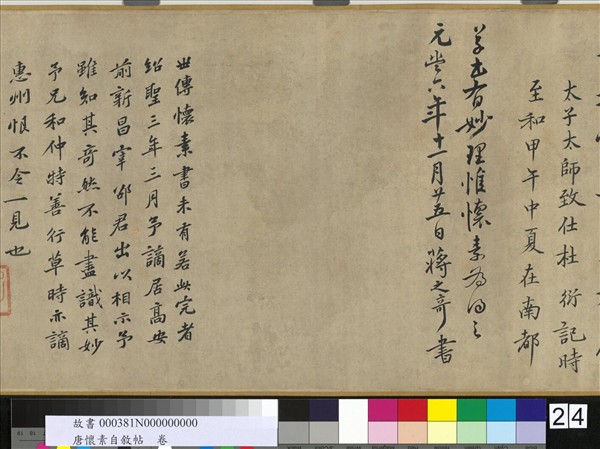 太子太師致仕杜衍記時
至和甲午中夏在南都
草書有妙理惟懷素為得之
元豐六年十一月廿五日蔣之奇書
世傳懷素書未有若此完者
紹聖三年三月予謫居高安
前新昌宰邵君出以相示予
雖知其奇然不能盡識其妙
予兄和仲特善行草時亦謫
惠州恨不令一見也
故書 000381N000000000
唐懷素自敘帖 卷
24